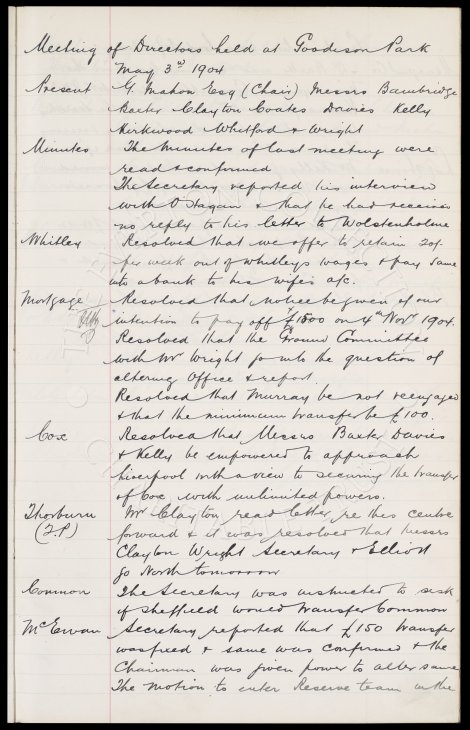 Meeting of Directors held at Goodison Park
May 3rd 1904
Present G. Mahon Esq (Chair) Messrs Bainbridge
Baxter Clayton Coates Davies Kelly
Kirkwood Whitford & Wright
Minutes The Minutes of last meeting were
read & confirmed
The Secretary reported his interview
with O'Hagan & that he had received
no reply to his letter to Wolstenholme
Whitley Resolved that we offer to retain 20/-
per week out of Whitleys wages & pay same
into a bank to his wife's a/c.
Mortgage Resolved that notice be given of our
intention to pay off £1500 on 4th Novr 1904.
Resolved that the Ground Committee
with Mr Wright go into the question of
altering Office & report.
Resolved that Murray be not reengaged
& that the minimum transfer be £100.
Cox Resolved that Messrs Baxter Davies
& Kelly be empowered to approach
Liverpool with a view to securing the transfer
of Cox with unlimited powers.
Thorburn Mr Clayton read letter re this centre
(2P) forward & it was resolved that Messrs
Clayton Wright Secretary & Elliott
go North tomorrow
Common The Secretary was instructed to ask
if Sheffield would transfer Common
McEwan Secretary reported that £150 transfer
was fixed & same was confirmed & the
Chairman was given power to alter same
The motion to enter Reserve team in the